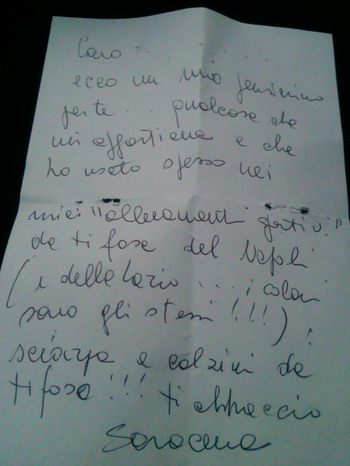 Caro . . . . . . .
ecco un mio pensierino
per te ... qualcosa che
mi appartiene e che
ho usato spesso nei
miei "allenamenti sportivi"
da tifosa del Napoli
(e della Lazio .... i colori
sono gli stessi !!!) :
sciarpa e calzini da
tifosa !!! ti abbraccio